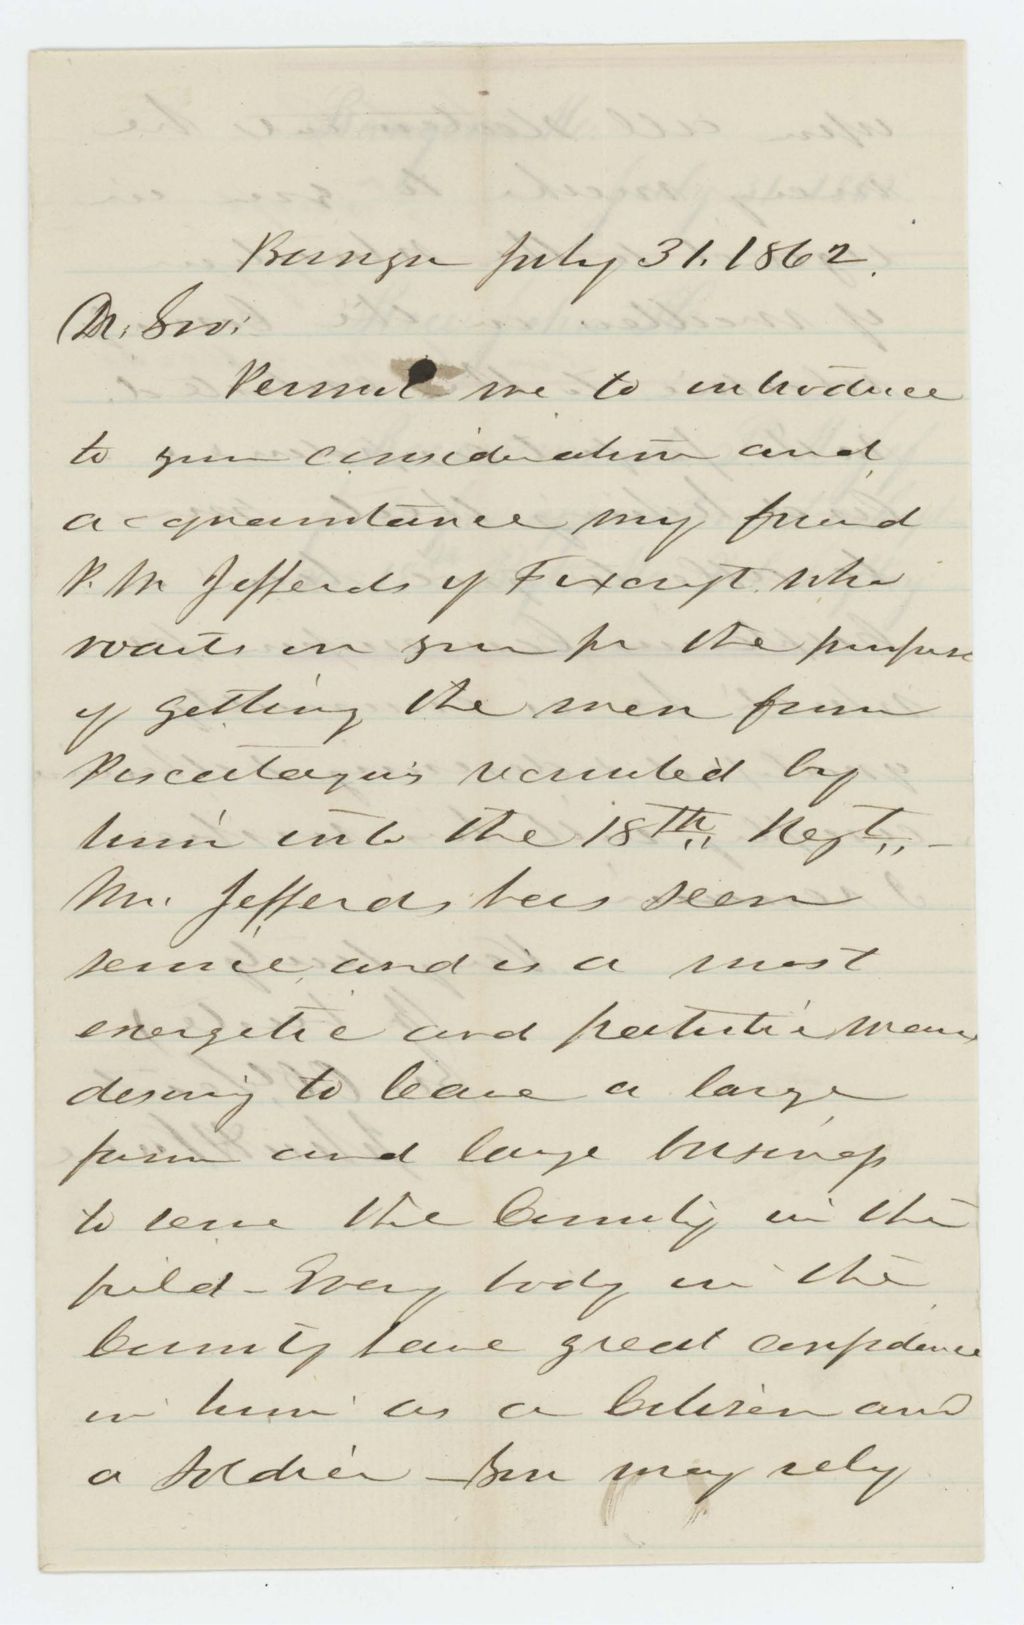 Bangor July 31. 1862.
Dr. Sir:
Permit me to introduce
to your consideration and
acquaintance my friend
P. M. Jefferds of Foxcroft. who
waits on you for the purpose
of getting the men from
Piscataquis recruited by
him into the 18th,, Regt,, -
Mr. Jefferds has seen
service, and is a most
energetic and patriotic man,
desiring to leave a large
farm and large business
to serve the County in the
field - Every body in the
County have great confidence
in him as a Citizen and
a Soldier - You may rely